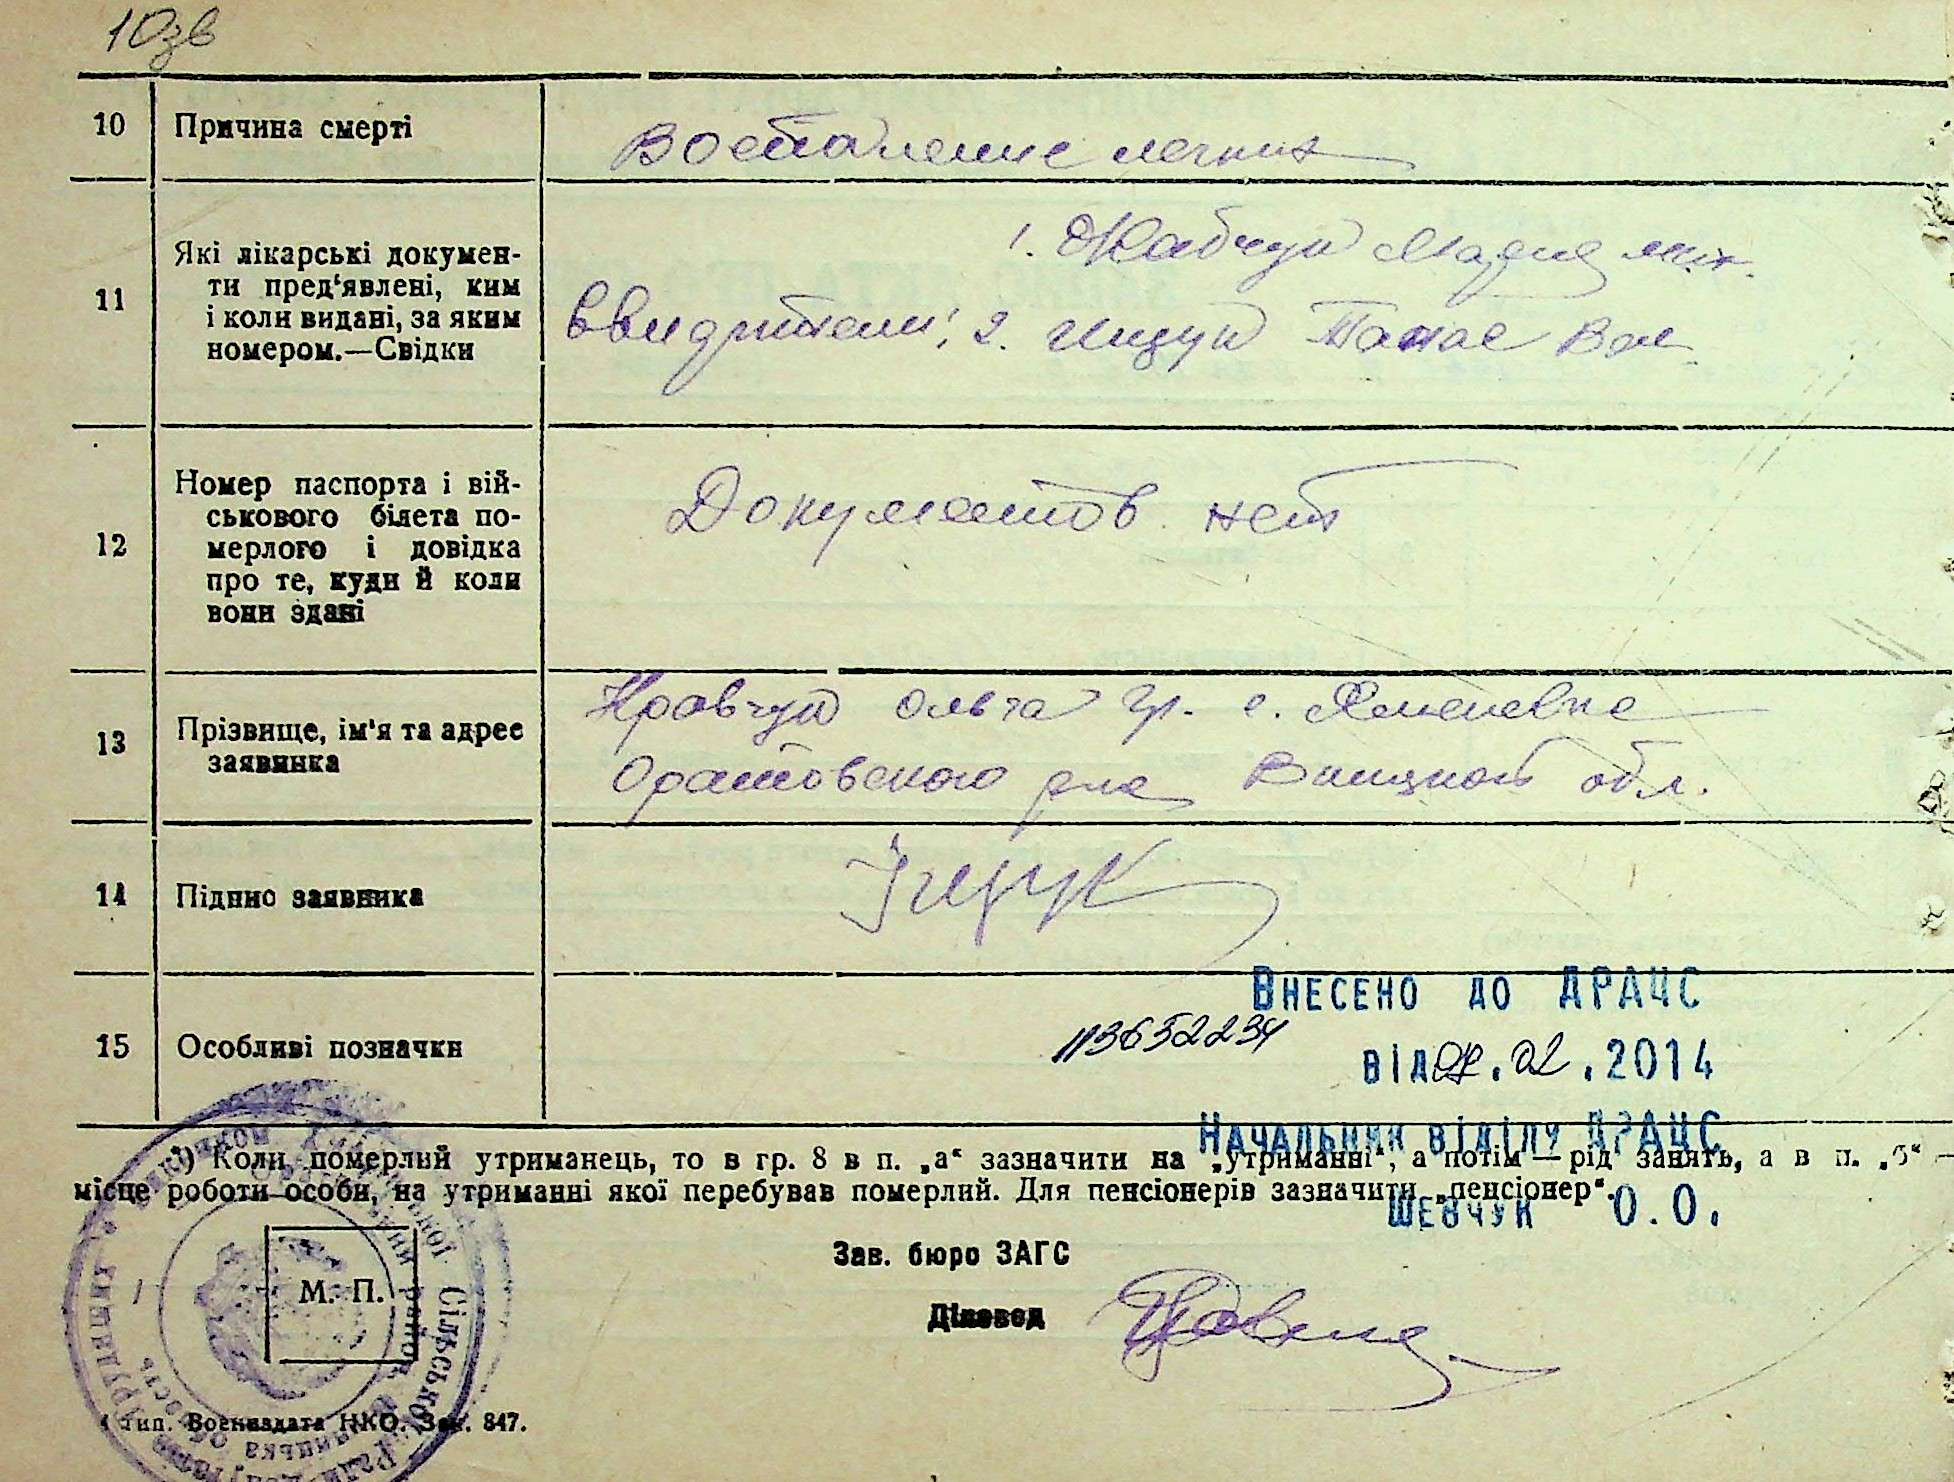 10зв
10 Причина смерті Воспаление легких
11 Які лікарські докумен-
ти пред'явлені, ким
і коли видані, за яким
номером.—Свідки
1. Жабчук Мария
2. Ищук Танас Вас.
12 Номер паспорта і вій-
ськового білета по-
мерлого і довідка
про те, куди й коли
вони здані
Документов нет
13 Прізвище, ім'я та адрес
заявника
Кравчук Ольга гр. с.
Оратовского р-на Вницкой обл.
14 Підпис заявника Іщук
15 Особливі позначки
Внесено до ДРАЦС
113652234
від .02.2014
Начальник відділу ДРАЦС
Шевчук О.О.
¹) Коли померлий утриманець, то в гр. 8 в п. „а“ зазначити на „утриманні“, а потім — рід занять, а в п. „б“ —
місце роботи особи, на утриманні якої перебував померлий. Для пенсіонерів зазначити „пенсіонер“.
Зав. бюро ЗАГС
М. П.
Діловод
Сільської
район
область
4 тип. Воениздата НКО. Зак. 847.